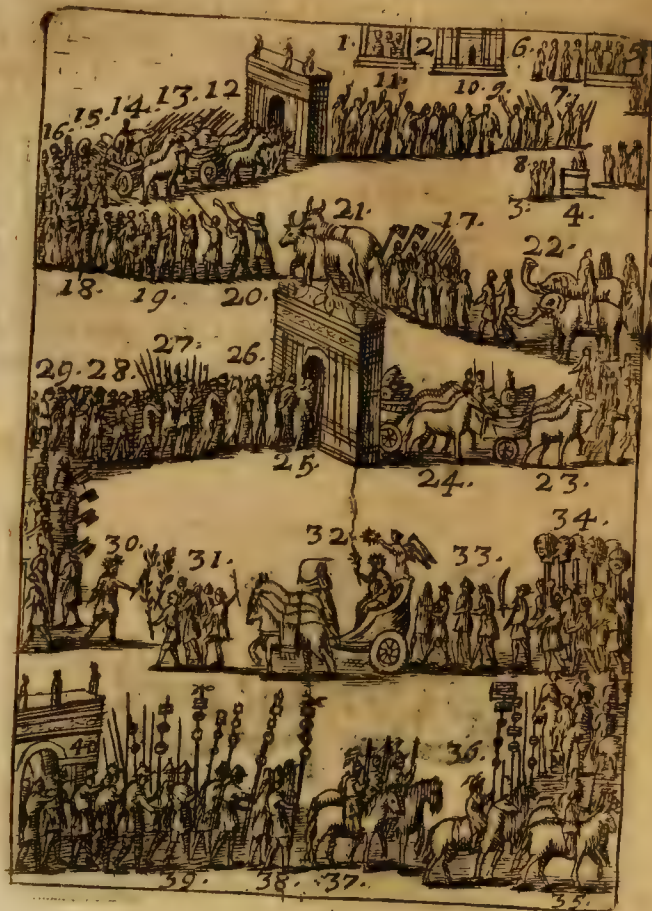 1. 2 6. 5
11. 10. 9. 7.
16. 15. 14. 13. 12
8
3. 4.
21. 17. 22.
18. 19. 20.
29. 28. 27. 26.
25. 24. 23.
30. 31. 32. 33. 34.
40
36.
39. 38. 37. 35.